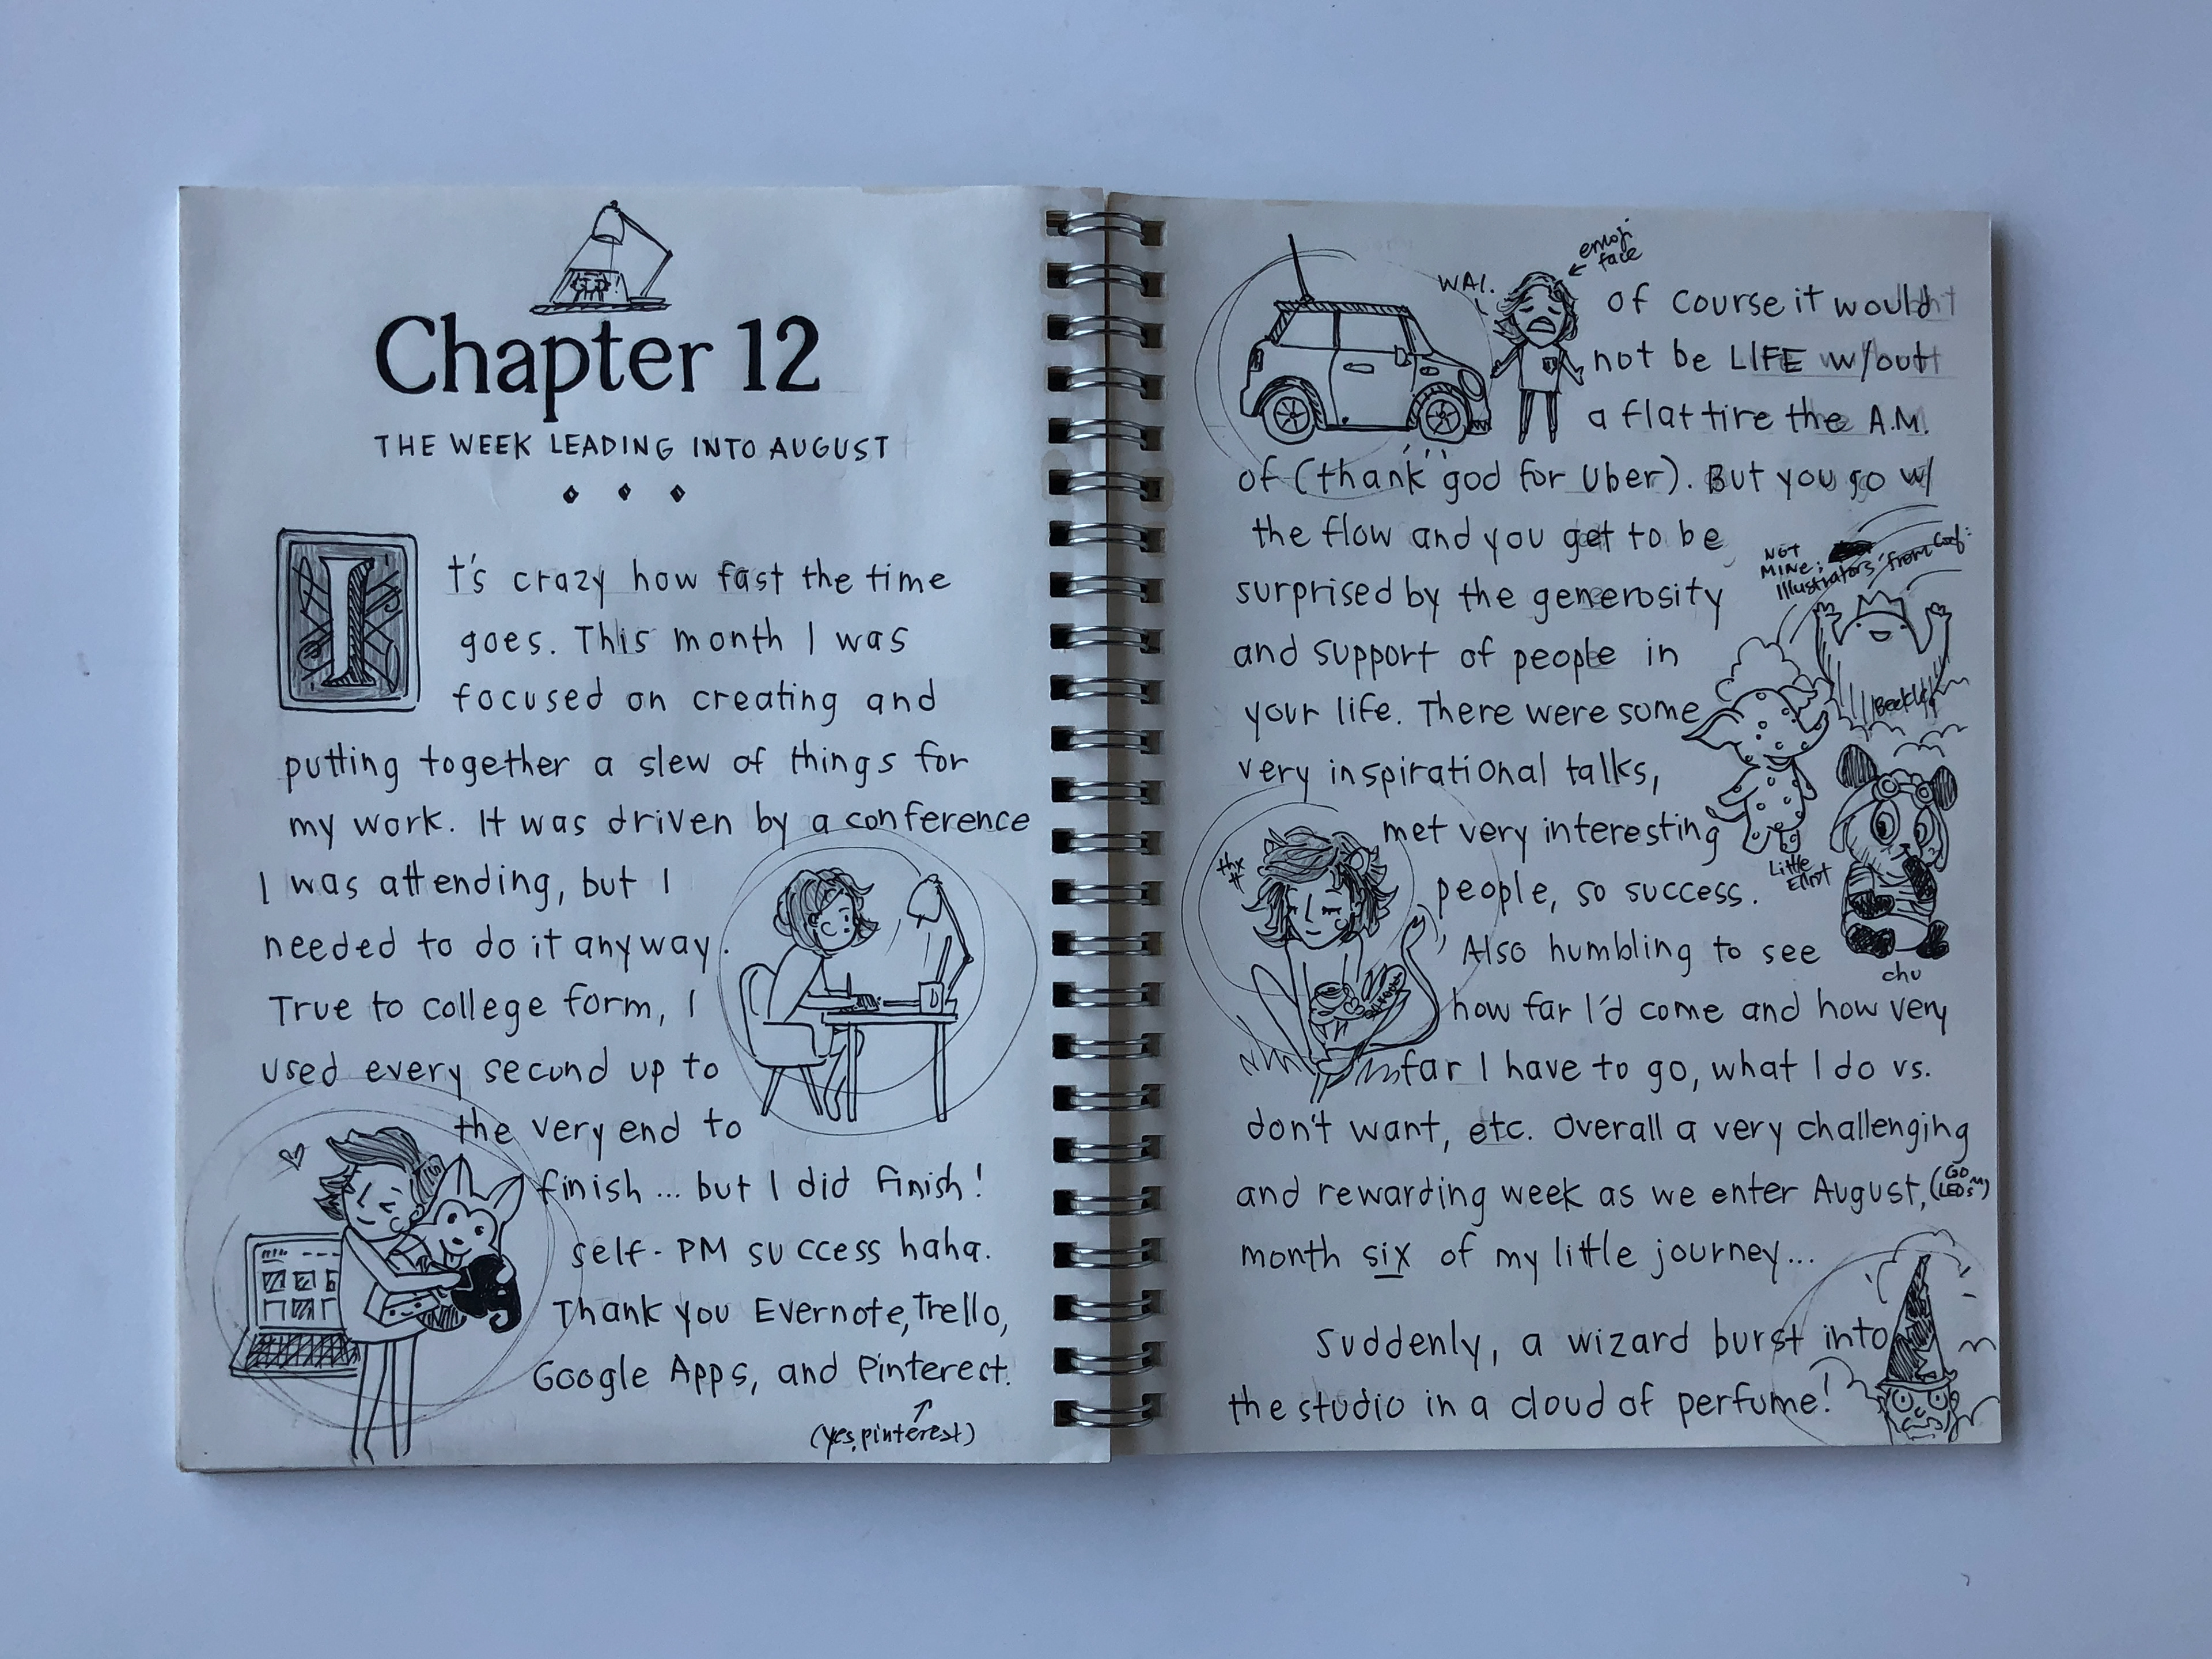 Chapter 12
THE WEEK LEADING INTO AUGUST
It's crazy how fast the time
goes. This month I was
focused on creating and
putting together a slew of things for
my work. It was driven by a conference
I was attending, but I
needed to do it anyway.
True to college form, I
used every second up to
the very end to
finish... but I did finish!
self-PM success haha.
Thank you Evernote, Trello,
Google Apps, and Pinterest.
(yes, pinterest)
WAI.
emoji
face
of course it would
not be LIFE w/out
a flat tire the A.M.
of (thank god for Uber). But you go w/
the flow and you get to be
surprised by the generosity
and support of people in
your life. There were some
very inspirational talks,
met very interesting
people, so success.
Also humbling to see
how far I'd come and how very
far I have to go, what I do vs.
don't want, etc. Overall a very challenging
and rewarding week as we enter August, (GO
LEOs)
month six of my little journey...
Suddenly, a wizard burst into
the studio in a cloud of perfume!
NOT
MINE:
Illustrators' from Conf:
Beekle
Little
Eliot
chu
thx